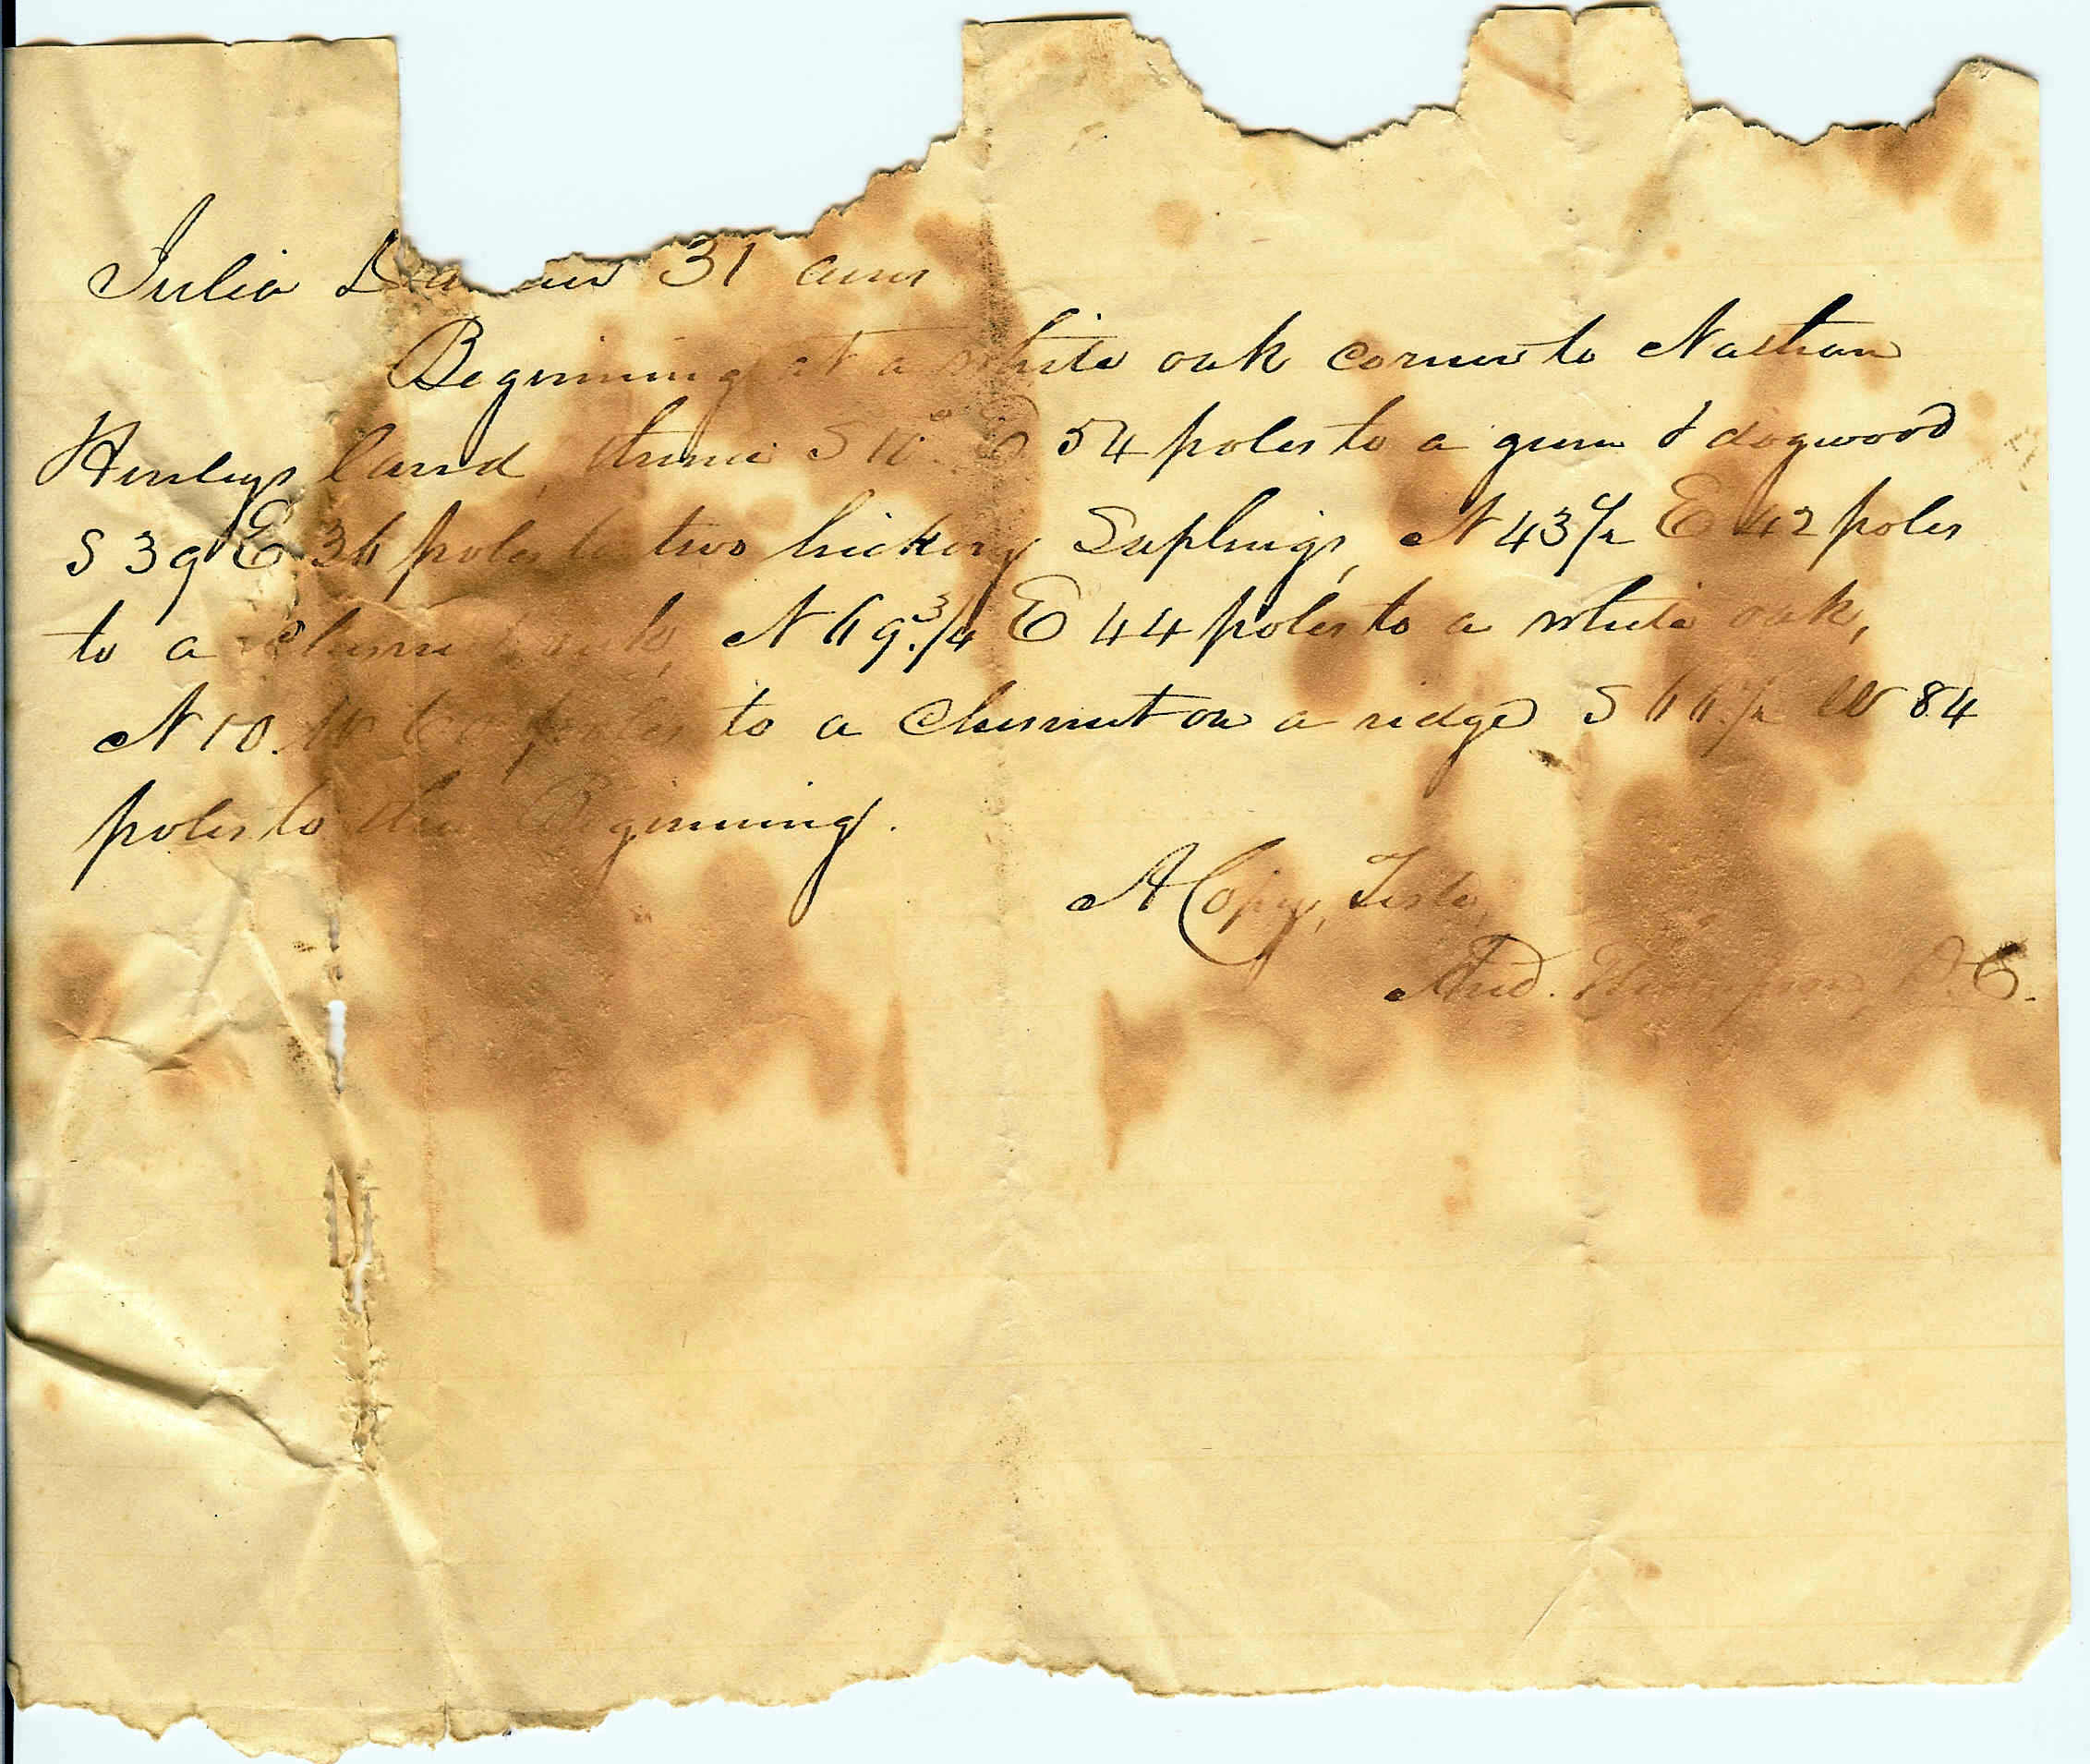 Julia 31 acres
Beginning at a white oak corner to Nathan
Henleys land, thence S 10° E 54 poles to a gum & dogwood
S 39 E 36 poles to two hickory Saplings, N 43 1/2 E 42 poles
to a N 69 3/4 E 44 poles to a white oak,
N 10. W poles to a Chesnut on a ridge S 66 1/2 W 84
poles to the Beginning.
A Copy, Teste,
And. D. C.